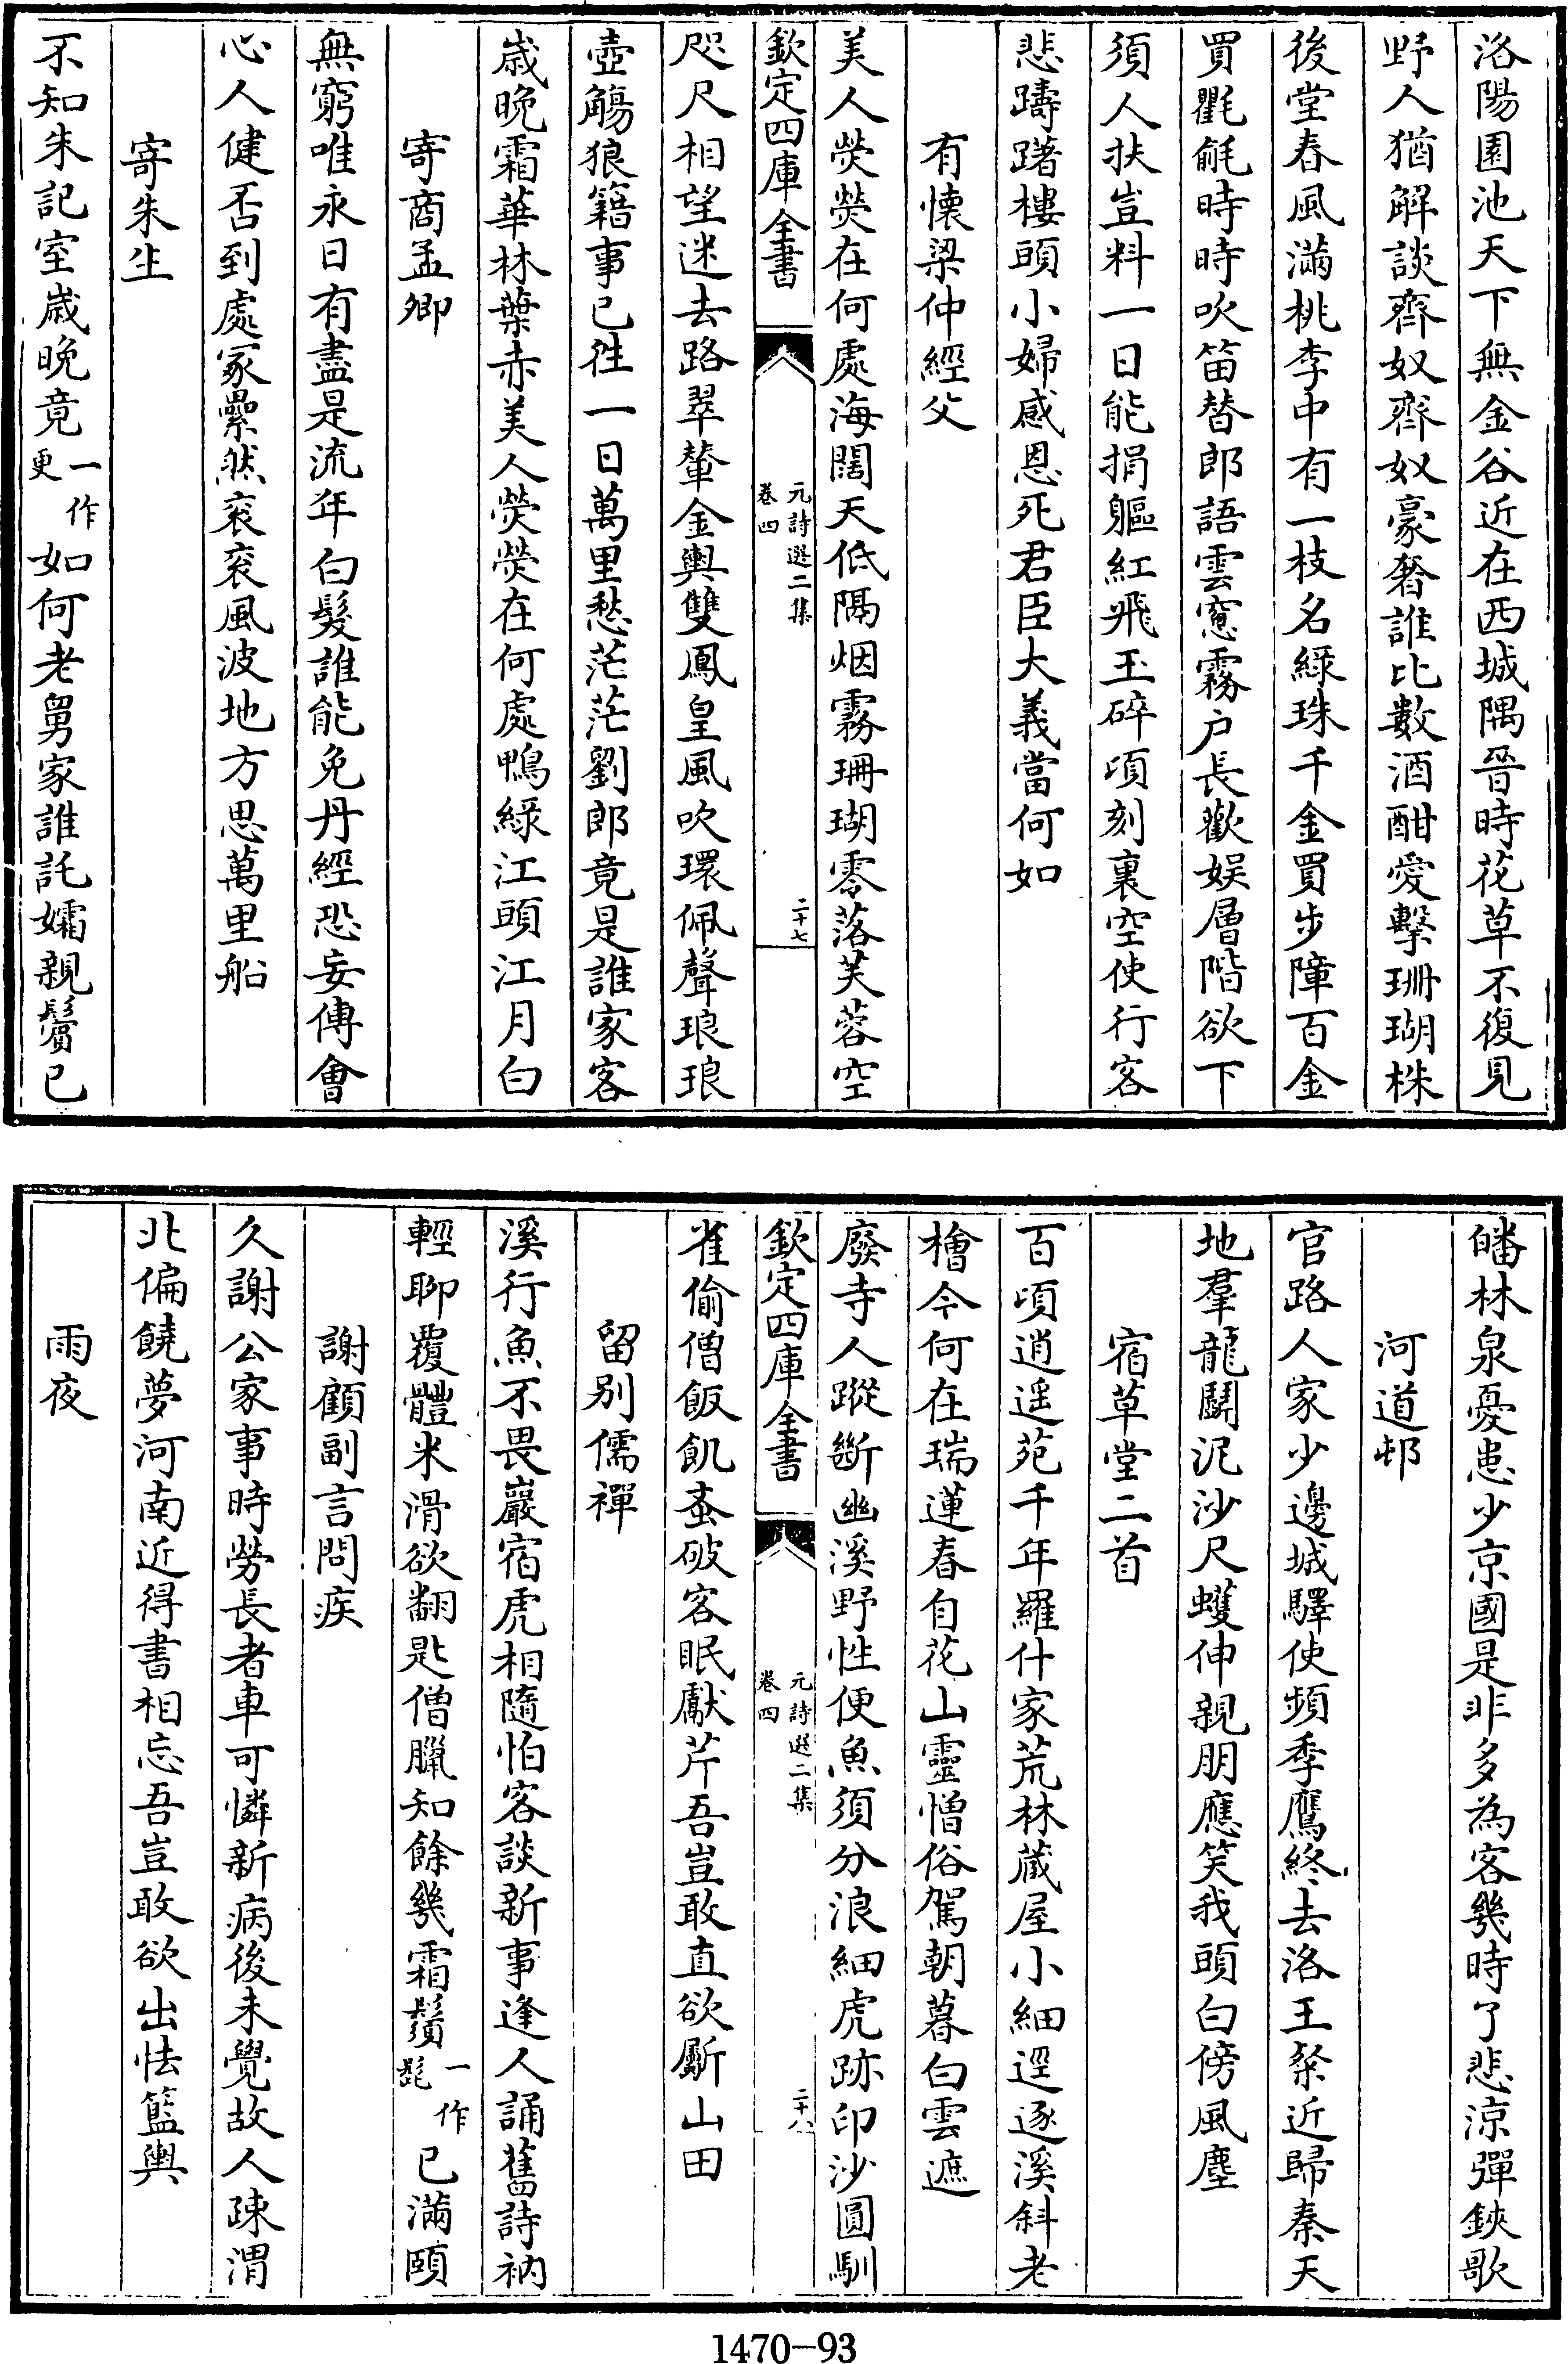 洛陽園池天下無金谷近在西城隅晉時花草不復見
野人猶解談齊奴齊奴豪奢誰比數酒酣愛擊珊瑚株
後堂春風滿桃李中有一枝名綠珠千金買步障百金
買氍毹時時吹笛替郎語雲窻霧户長歡娱層階欲下
須人扶豈料一日能捐軀紅飛玉碎頃刻裏空使行客
悲躊躇樓頭小婦感恩死君臣大義當何如
有懐梁仲經父
美人熒熒在何處海闊天低隔烟霧珊瑚零落芙蓉空
欽定四庫全書
元詩選二集
卷四
二十七
咫尺相望迷去路翠輦金輿雙鳳皇風吹環佩聲琅琅
壺觴狼籍事已徃一日萬里愁茫茫劉郎竟是誰家客
歲晚霜華林葉赤美人熒熒在何處鴨綠江頭江月白
寄商孟卿
無窮唯永日有盡是流年白髮誰能免丹經恐妄傳會
心人健否到處冢纍然衮衮風波地方思萬里船
寄朱生
不知朱記室歲晚竟一作更如何老舅家誰託孀親鬢已
皤林泉憂患少京國是非多為客幾時了悲涼彈鋏歌
河道邨
官路人家少邊城驛使頻季鷹終去洛王粲近歸秦天
地羣龍鬭泥沙尺蠖伸親朋應笑我頭白傍風塵
宿草堂二首
百頃逍遥苑千年羅什家荒林蔵屋小細逕逐溪斜老
檜今何在瑞蓮春自花山靈憎俗駕朝暮白雲遮
廢寺人蹤斷幽溪野性便魚須分浪細虎跡印沙圓馴
欽定四庫全書
元詩選二集
卷四
二十八
雀偷僧飯飢蚤破客眠獻芹吾豈敢直欲斸山田
留别儒禪
溪行魚不畏巖宿虎相隨怕客談新事逢人誦舊詩衲
輕聊覆體米滑欲翻匙僧臘知餘幾霜鬚一作髭已滿頤
謝顧副言問疾
久謝公家事時勞長者車可憐新病後未覺故人疎渭
北偏饒夢河南近得書相忘吾豈敢欲出怯籃輿
雨夜
1470-93